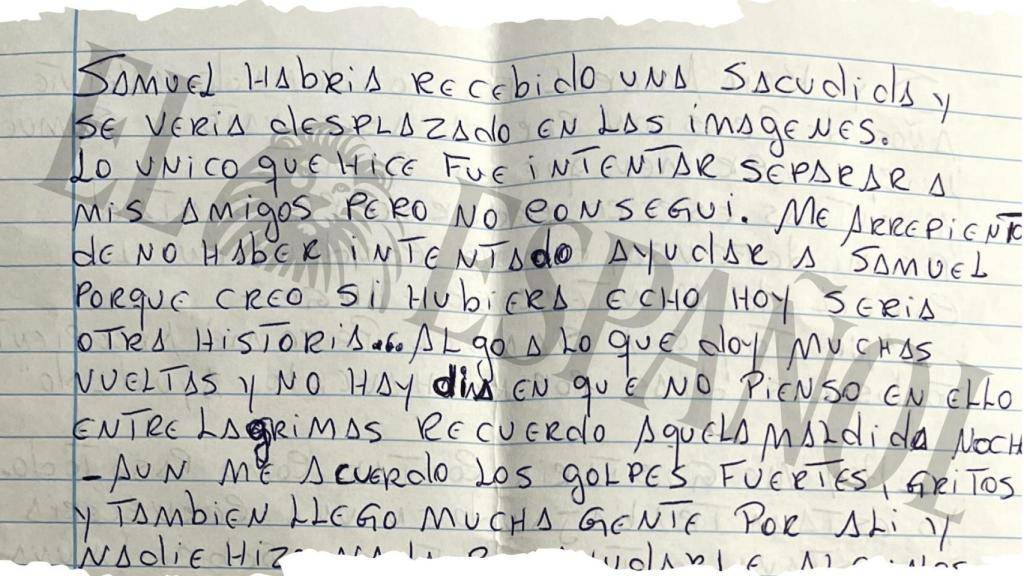 SAMUEL HABRIA RECEBIDO UNA SACUDIDA Y
SE VERIA DESPLAZADO EN LAS IMAGENES.
LO UNICO QUE HICE FUE INTENTAR SEPARAR A
MIS AMIGOS PERO NO CONSEGUI. ME ARREPIENTO
DE NO HABER INTENTADO AYUDAR A SAMUEL
PORQUE CREO SI HUBIERA ECHO HOY SERIA
OTRA HISTORIA... ALGO A LO QUE DOY MUCHAS
VUELTAS Y NO HAY DIA EN QUE NO PIENSO EN ELLO
ENTRE LAGRIMAS RECUERDO AQUELA MALDIDA NOCH
- AUN ME ACUERDO LOS GOLPES FUERTES, GRITOS
Y TAMBIEN LLEGO MUCHA GENTE POR ALI Y
NADIE
EL ESPAÑOL